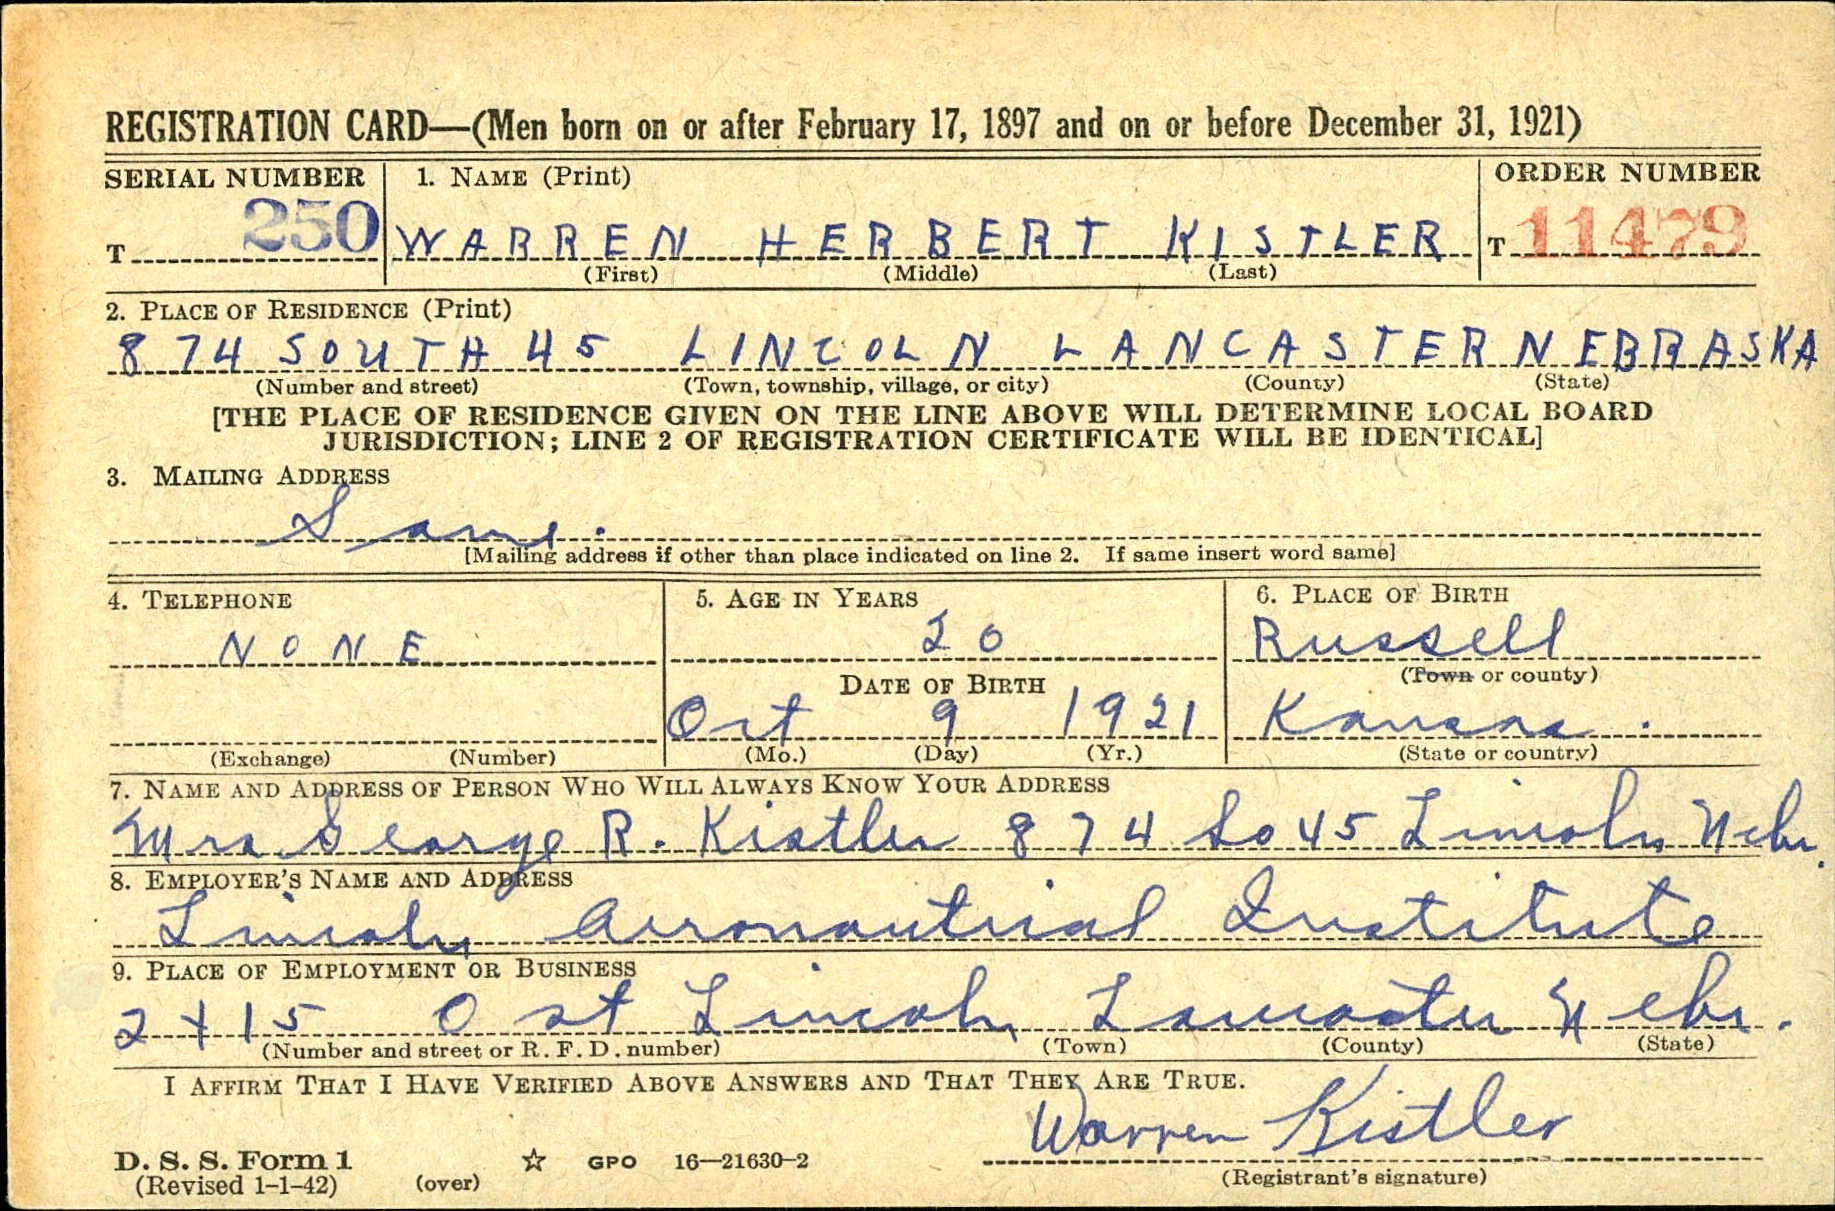 REGISTRATION CARD—(Men born on or after February 17, 1897 and on or before December 31, 1921)
SERIAL NUMBER 1. NAME (Print) ORDER NUMBER
T 250 WARREN HERBERT KISTLER T 11479
(First) (Middle) (Last)
2. PLACE OF RESIDENCE (Print)
874 SOUTH 45 LINCOLN LANCASTER NEBRASKA
(Number and street) (Town, township, village, or city) (County) (State)
[THE PLACE OF RESIDENCE GIVEN ON THE LINE ABOVE WILL DETERMINE LOCAL BOARD
JURISDICTION; LINE 2 OF REGISTRATION CERTIFICATE WILL BE IDENTICAL]
3. MAILING ADDRESS
Same.
[Mailing address if other than place indicated on line 2. If same insert word same]
4. TELEPHONE 5. AGE IN YEARS 6. PLACE OF BIRTH
NONE 20 Russell
(Town or county)
DATE OF BIRTH
Oct 9 1921 Kansas.
(Exchange) (Number) (Mo.) (Day) (Yr.) (State or country)
7. NAME AND ADDRESS OF PERSON WHO WILL ALWAYS KNOW YOUR ADDRESS
Mrs George R. Kistler 874 So 45 Lincoln Nebr.
8. EMPLOYER'S NAME AND ADDRESS
Lincoln Aeronautical Institute
9. PLACE OF EMPLOYMENT OR BUSINESS
2415 O st Lincoln Lancaster Nebr.
(Number and street or R. F. D. number) (Town) (County) (State)
I AFFIRM THAT I HAVE VERIFIED ABOVE ANSWERS AND THAT THEY ARE TRUE.
Warren Kistler
D. S. S. Form 1 GPO 16—21630-2
(Revised 1-1-42) (over) (Registrant's signature)